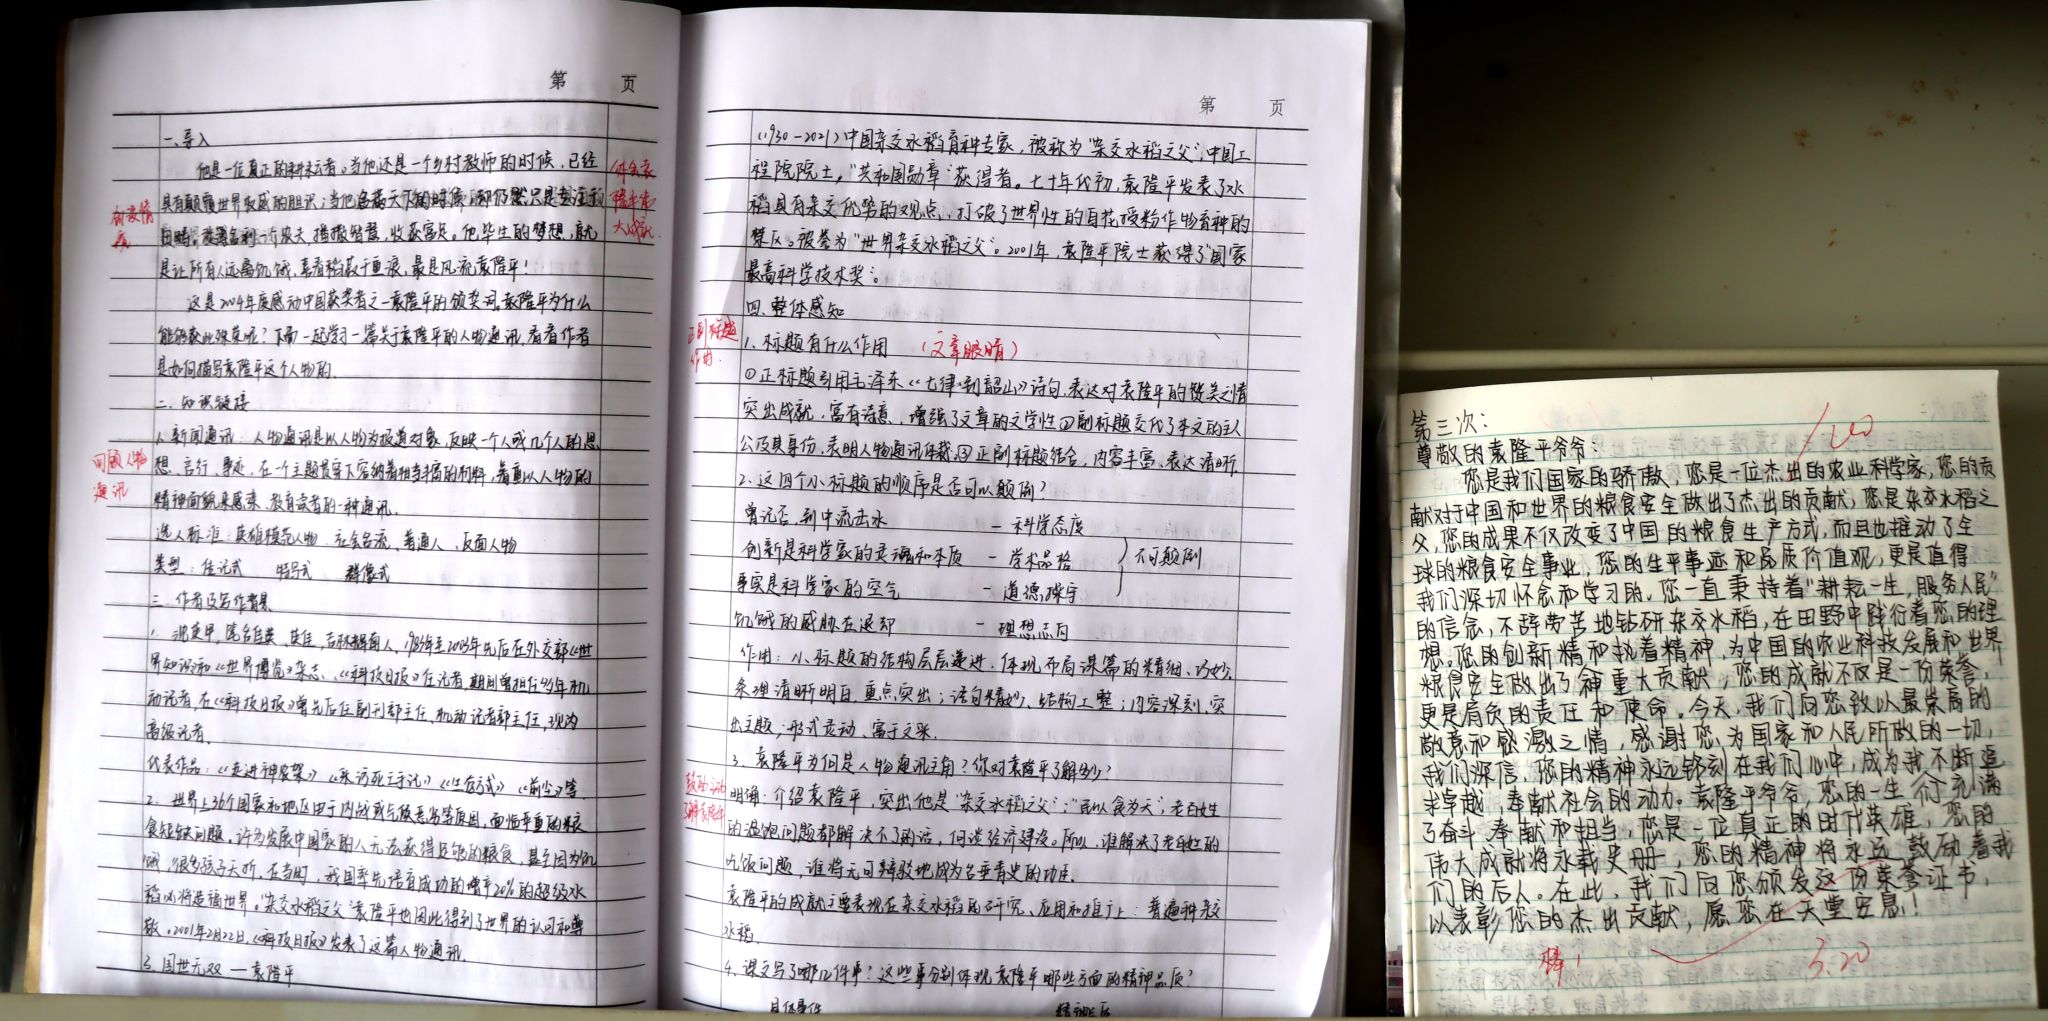 第 页
一、导入
他是一位真正的耕耘者。当他还是一个乡村教师的时候，已经
具有颠覆世界权威的胆识；当他名满天下的时候，却仍然只是专注于
田畴。淡泊名利，一介农夫，播撒智慧，收获富足。他毕生的梦想，就
是让所有人远离饥饿，喜看稻菽千重浪，最是风流袁隆平！
这是2004年度感动中国获奖者之一袁隆平的颁奖词，袁隆平为什么
能够获此殊荣呢？下面一起学习一篇关于袁隆平的人物通讯，看看作者
是如何描写袁隆平这个人物的。
创设情
二、知识链接
1、新闻通讯：人物通讯是以人物为报道对象，反映一个人或几个人的思
想、言行、事迹，在一个主题贯穿下容纳着相当丰富的材料，着重以人物的
精神面貌来感染、教育读者的一种通讯。
回顾人物
通讯
选人标准：英雄模范人物、社会名流、普通人、反面人物
类型：传记式 特写式 群像式
三、作者及写作背景
1、沈英甲，笔名英、吉林辉南人，1983年至2003年先后在外交部《世
界知识》和《世界博览》杂志、《科技日报》任记者，期间曾担任多年机
动记者，在《科技日报》曾先后任副刊部主任、机动记者部主任，现为
高级记者。
代表作品：《走进神农架》《采访死亡手记》《生存方式》《前尘》等
2、世界上36个国家和地区由于内战或气候异常等原因，面临严重的粮
食短缺问题。许多发展中国家的人无法获得足够的粮食，甚至因为饥
饿，很多孩子夭折。在当时，我国率先培育成功的增产20%的超级水
稻必将造福世界。“杂交水稻之父”袁隆平也因此得到了世界的认可和尊
敬。2001年2月22日，《科技日报》发表了这篇人物通讯。
3、国世无双——袁隆平
第 页
（1930-2021）中国杂交水稻育种专家，被称为“杂交水稻之父”，中国工
程院院士，“共和国勋章”获得者。七十年代初，袁隆平发表了水
稻具有杂交优势的观点，打破了世界性的自花授粉作物育种的
禁区。被誉为“世界杂交水稻之父”。2001年，袁隆平院士获得了“国家
最高科学技术奖”。
四、整体感知
正副标题
作用
1、标题有什么作用 （文章眼睛）
①正标题引用毛泽东《七律·到韶山》诗句，表达对袁隆平的赞美之情
突出成就，富有诗意，增强了文章的文学性②副标题交代了本文的主人
公及其身份，表明人物通讯体裁③正副标题结合，内容丰富、表达清晰
2、这四个小标题的顺序是否可以颠倒？
曾记否，到中流击水 — 科学态度
创新是科学家的灵魂和本质 — 学术品格 不可颠倒
事实是科学家的空气 — 道德操守
饥饿的威胁在退却 — 理想志向
作用：小标题的结构层层递进，体现布局谋篇的精细、巧妙，
条理清晰明白，重点突出；语句精妙，结构工整；内容深刻，突
出主题；形式灵动、富于文采。
3、袁隆平为何是人物通讯主角？你对袁隆平了解多少？
鼓励主动
了解袁隆平
明确：介绍袁隆平，突出他是“杂交水稻之父”；“民以食为天”，老百姓
的温饱问题都解决不了的话，何谈经济建设。所以，谁解决了老百姓的
吃饭问题，谁将无可辩驳地成为名垂青史的功臣。
袁隆平的成就主要表现在杂交水稻的研究、应用和推广上：普遍种杂交
水稻。
4、课文写了哪几件事？这些事分别体现袁隆平哪些方面的精神品质？
具体事件 精神品质
第三次：
100
尊敬的袁隆平爷爷：
您是我们国家的骄傲，您是一位杰出的农业科学家，您的贡
献对于中国和世界的粮食安全做出了杰出的贡献，您是杂交水稻之
父，您的成果不仅改变了中国的粮食生产方式，而且也推动了全
球的粮食安全事业，您的生平事迹和品质价值观，更是值得
我们深切怀念和学习的。您一直秉持着“耕耘一生，服务人民”
的信念，不辞劳苦地钻研杂交水稻，在田野中践行着您的理
想。您的创新精和执着精神，为中国的农业科技发展和世界
粮食安全做出了重大贡献，您的成就不仅是一份荣誉，
更是肩负的责任和使命。今天，我们向您致以最崇高的
敬意和感激之情，感谢您为国家和人民所做的一切，
我们深信，您的精神永远铭刻在我们心中，成为我不断追
求卓越，奉献社会的动力。袁隆平爷爷，您的一生充满
了奋斗、奉献和担当，您是一位真正的时代英雄，您的
伟大成就将永载史册，您的精神将永远鼓励着我
们的后人。在此，我们向您颁发这份荣誉证书，
以表彰您的杰出贡献，愿您在天堂安息！
棒！
3.20